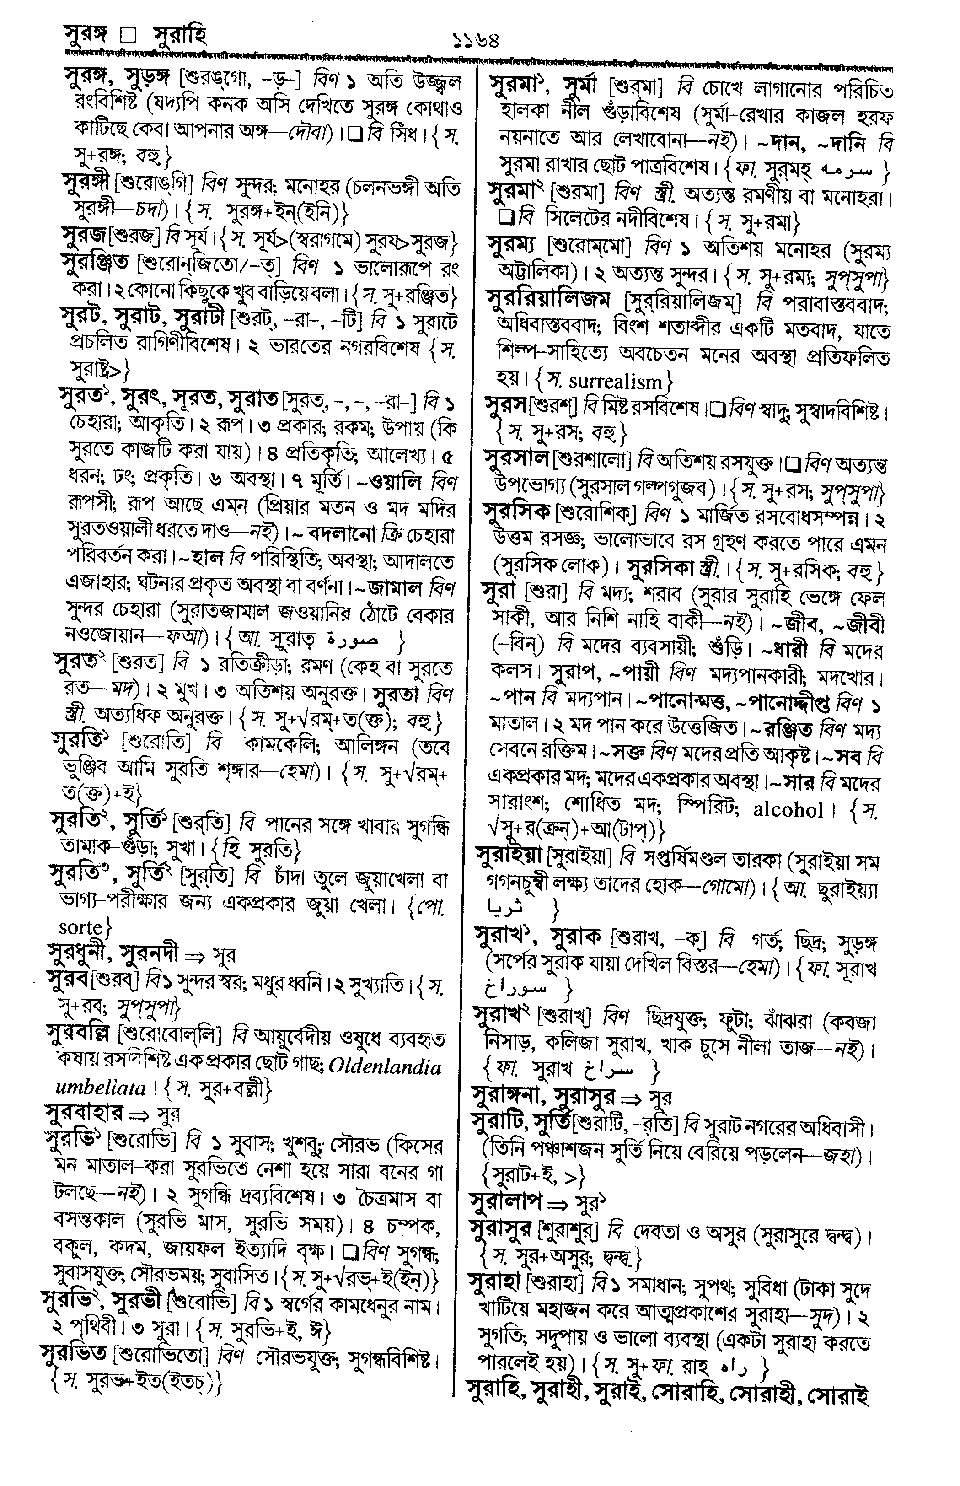 সুরঙ্গ □ সুরাহি
১১৬৪
সুরঙ্গ, সুড়ঙ্গ [শুরঙ্‌গো, -ড়-] বিণ ১ অতি উজ্জ্বল
রংবিশিষ্ট (যদ্যপি কনক অসি দেখিতে সুরঙ্গ কোথাও
কাটিছে কেবা আপনার অঙ্গ—দৌবা)। □ বি সিঁধ। {স.
সু+রঙ্গ; বহু}
সুরঙ্গী [শুরোঙ্‌গি] বিণ সুন্দর; মনোহর (চলনভঙ্গী অতি
সুরঙ্গী—চদা)। {স. সুরঙ্গ+ইন্(ইনি)}
সুরজ [শুরজ] বি সূর্য। {স. সূর্য>(স্বরাগমে) সুরয>সুরজ}
সুরঞ্জিত [শুরোন্‌জিতো/-ত্] বিণ ১ ভালোরূপে রং
করা। ২ কোনো কিছুকে খুব বাড়িয়ে বলা। {স. সু+রঞ্জিত}
সুরট, সুরাট, সুরাটী [শুরট্, -রা-, -টি] বি ১ সুরাটে
প্রচলিত রাগিণীবিশেষ। ২ ভারতের নগরবিশেষ {স.
সুরাষ্ট্র>}
সুরত১, সুরৎ, সূরত, সুরাত [সুরত্, -, -, -রা-] বি ১
চেহারা; আকৃতি। ২ রূপ। ৩ প্রকার; রকম; উপায় (কি
সুরতে কাজটি করা যায়)। ৪ প্রতিকৃতি; আলেখ্য। ৫
ধরন; ঢং; প্রকৃতি। ৬ অবস্থা। ৭ মূর্তি। ~ওয়ালি বিণ
রূপসী; রূপ আছে এমন (প্রিয়ার মতন ও মদ মদির
সুরতওয়ালী ধরতে দাও—নই)। ~ বদলানো ক্রি চেহারা
পরিবর্তন করা। ~হাল বি পরিস্থিতি; অবস্থা; আদালতে
এজাহার; ঘটনার প্রকৃত অবস্থা বা বর্ণনা। ~জামাল বিণ
সুন্দর চেহারা (সুরাতজামাল জওয়ানির ঠোটে বেকার
নওজোয়ান—ফআ)। {আ. সূরাত় صورة }
সুরত২ [শুরত] বি ১ রতিক্রীড়া; রমণ (কেহ বা সুরতে
রত—মদ)। ২ মুখ। ৩ অতিশয় অনুরক্ত। সুরতা বিণ
স্ত্রী. অত্যধিক অনুরক্ত। {স. সু+√রম্+ত(ক্ত); বহু}
সুরতি১ [শুরোতি] বি কামকেলি; আলিঙ্গন (তবে
ভুঞ্জিব আমি সুরতি শৃঙ্গার—হেমা)। {স. সু+√রম্+
ত(ক্ত)+ই}
সুরতি২, সুর্তি১ [শুর্‌তি] বি পানের সঙ্গে খাবার সুগন্ধি
তামাক-গুঁড়া; সুখা। {হি সুরতি}
সুরতি৩, সুর্তি২ [সুর্‌তি] বি চাঁদা তুলে জুয়াখেলা বা
ভাগ্য-পরীক্ষার জন্য একপ্রকার জুয়া খেলা। {পো.
sorte}
সুরধুনী, সুরনদী ⇒ সুর
সুরব [শুরব্] বি ১ সুন্দর স্বর; মধুর ধ্বনি। ২ সুখ্যাতি। {স.
সু+রব; সুপ্‌সুপা}
সুরবল্লি [শুরোবোল্‌লি] বি আয়ুর্বেদীয় ওষুধে ব্যবহৃত
কষায় রসবিশিষ্ট একপ্রকার ছোট গাছ; Oldenlandia
umbeliata। {স. সুর+বল্লী}
সুরবাহার ⇒ সুর
সুরভি১ [শুরোভি] বি ১ সুবাস; খুশবু; সৌরভ (কিসের
মন মাতাল-করা সুরভিতে নেশা হয়ে সারা বনের গা
টলছে—নই)। ২ সুগন্ধি দ্রব্যবিশেষ। ৩ চৈত্রমাস বা
বসন্তকাল (সুরভি মাস, সুরভি সময়)। ৪ চম্পক,
বকুল, কদম, জায়ফল ইত্যাদি বৃক্ষ। □ বিণ সুগন্ধ;
সুবাসযুক্ত; সৌরভময়; সুবাসিত। {স. সু+√রভ্+ই(ইন্)}
সুরভি২, সুরভী [শুরোভি] বি ১ স্বর্গের কামধেনুর নাম।
২ পৃথিবী। ৩ সুরা। {স. সুরভি+ই, ঈ}
সুরভিত [শুরোভিতো] বিণ সৌরভযুক্ত; সুগন্ধবিশিষ্ট।
{স. সুরভ+ইত(ইতচ্)}
সুরমা১, সুর্মা [শুরমা] বি চোখে লাগানোর পরিচিত
হালকা নীল গুঁড়াবিশেষ (সুর্মা-রেখার কাজল হরফ
নয়নাতে আর লেখাবোনা—নই)। ~দান, ~দানি বি
সুরমা রাখার ছোট পাত্রবিশেষ। {ফা. সুর্‌মহ্ سرمه }
সুরমা২ [শুরমা] বিণ স্ত্রী. অত্যন্ত রমণীয় বা মনোহরা।
□ বি সিলেটের নদীবিশেষ। {স. সু+রমা}
সুরম্য [শুরোম্‌মো] বিণ ১ অতিশয় মনোহর (সুরম্য
অট্টালিকা)। ২ অত্যন্ত সুন্দর। {স. সু+রম্য; সুপ্‌সুপা}
সুররিয়ালিজম [সুর্‌রিয়ালিজ্‌ম্] বি পরাবাস্তববাদ;
অধিবাস্তববাদ; বিংশ শতাব্দীর একটি মতবাদ, যাতে
শিল্প-সাহিত্যে অবচেতন মনের অবস্থা প্রতিফলিত
হয়। {স. surrealism}
সুরস [শুরশ্] বি মিষ্ট রসবিশেষ। □ বিণ স্বাদু; সুস্বাদবিশিষ্ট।
{স. সু+রস; বহু}
সুরসাল [শুরশালো] বি অতিশয় রসযুক্ত। □ বিণ অত্যন্ত
উপভোগ্য (সুরসাল গল্পগুজব)। {স. সু+রস; সুপ্‌সুপা}
সুরসিক [শুরোশিক্] বিণ ১ মার্জিত রসবোধসম্পন্ন। ২
উত্তম রসজ্ঞ; ভালোভাবে রস গ্রহণ করতে পারে এমন
(সুরসিক লোক)। সুরসিকা স্ত্রী.। {স. সু+রসিক; বহু}
সুরা [শুরা] বি মদ্য; শরাব (সুরার সুরাহি ভেঙ্গে ফেল
সাকী, আর নিশি নাহি বাকী—নই)। ~জীব, ~জীবী
(-বিন্) বি মদের ব্যবসায়ী; শুঁড়ি। ~ধারী বি মদের
কলস। সুরাপ, ~পায়ী বিণ মদ্যপানকারী; মদখোর।
~পান বি মদ্যপান। ~পানোন্মত্ত, ~পানোদ্দীপ্ত বিণ ১
মাতাল। ২ মদ পান করে উত্তেজিত। ~রঞ্জিত বিণ মদ্য
সেবনে রক্তিম। ~সক্ত বিণ মদের প্রতি আকৃষ্ট। ~সব বি
একপ্রকার মদ; মদের একপ্রকার অবস্থা। ~সার বি মদের
সারাংশ; শোধিত মদ; স্পিরিট; alcohol। {স.
√সু+র(ক্রন্)+আ(টাপ্)}
সুরাইয়া [সুরাইয়া] বি সপ্তর্ষিমণ্ডল তারকা (সুরাইয়া সম
গগনচুম্বী লক্ষ্য তাদের হোক—গোমো)। {আ. ছুরাইয়্যা
ثريا }
সুরাখ১, সুরাক [শুরাখ্, -ক্] বি গর্ত; ছিদ্র; সুড়ঙ্গ
(সর্পের সুরাক যায়া দেখিল বিস্তর—হেমা)। {ফা. সূরাখ
سوراخ }
সুরাখ২ [শুরাখ্] বিণ ছিদ্রযুক্ত; ফুটা; ঝাঁঝরা (কবজা
নিসাড়, কলিজা সুরাখ, খাক চুসে নীলা তাজ—নই)।
{ফা. সুরাখ سراخ }
সুরাঙ্গনা, সুরাসুর ⇒ সুর
সুরাটি, সুর্তি [শুরাটি, -র্‌তি] বি সুরাট নগরের অধিবাসী।
(তিনি পঞ্চাশজন সুর্তি নিয়ে বেরিয়ে পড়লেন—জহা)।
{সুরাট+ই, >}
সুরালাপ ⇒ সুর১
সুরাসুর [শুরাশুর্] বি দেবতা ও অসুর (সুরাসুরে দ্বন্দ্ব)।
{স. সুর+অসুর; দ্বন্দ্ব}
সুরাহা [শুরাহা] বি ১ সমাধান; সুপথ; সুবিধা (টাকা সুদে
খাটিয়ে মহাজন করে আত্মপ্রকাশের সুরাহা—সুদ)। ২
সুগতি; সদুপায় ও ভালো ব্যবস্থা (একটা সুরাহা করতে
পারলেই হয়)। {স. সু+ফা. রাহ راه }
সুরাহি, সুরাহী, সুরাই, সোরাহি, সোরাহী, সোরাই